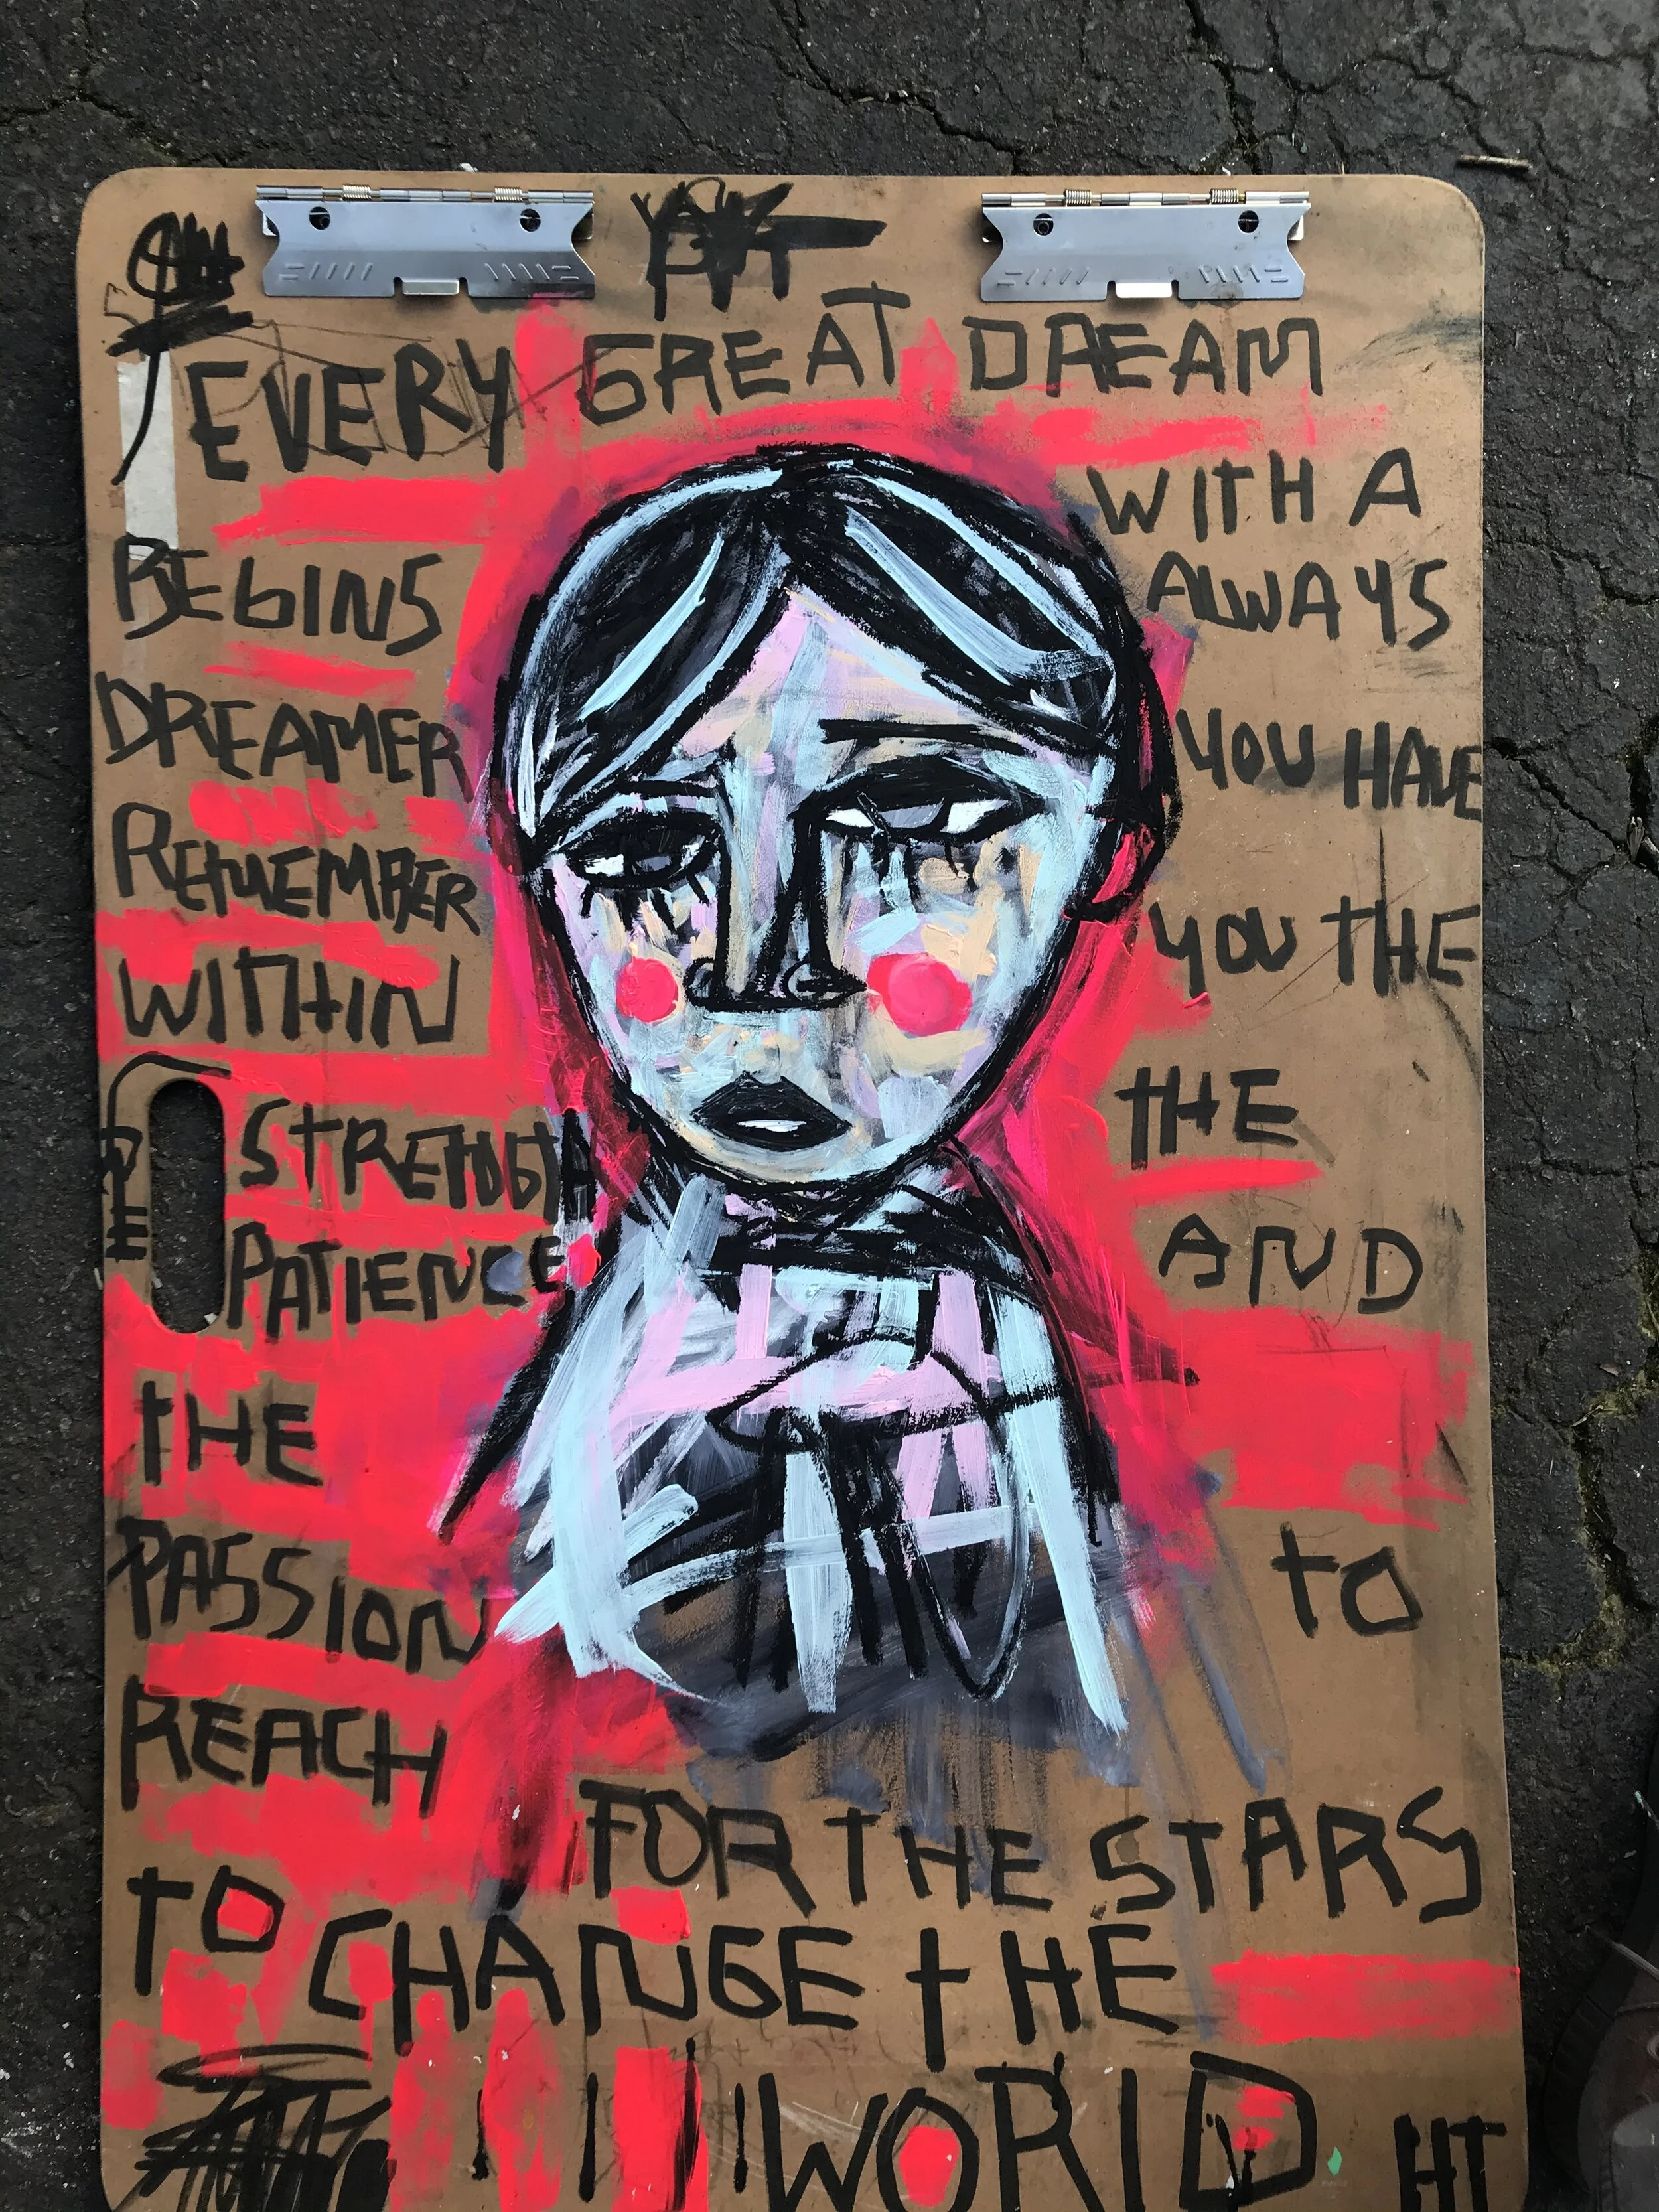 EVERY GREAT DREAM
BEGINS WITH A
DREAMER ALWAYS
REMEMBER YOU HAVE
WITHIN YOU THE
STRENGTH THE
PATIENCE AND
THE
PASSION TO
REACH FOR THE STARS
TO CHANGE THE
WORLD
HT